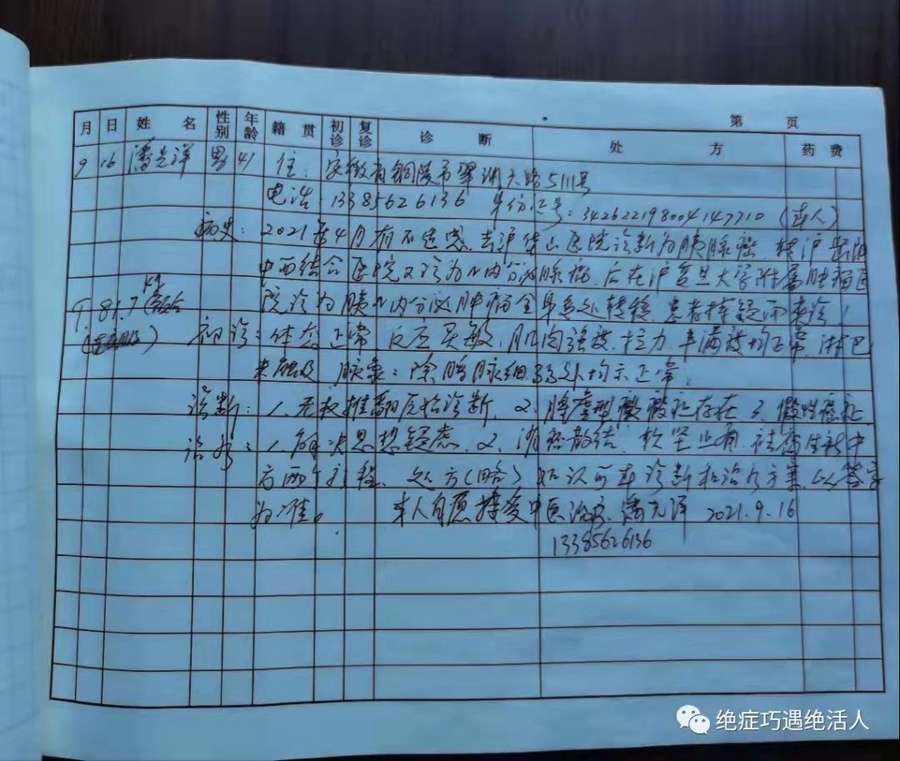 第 页
月 日 姓 名 性别 年龄 籍 贯 初诊 复诊 诊 断 处 方 药 费
9 16 潘先洋 男 41 住: 安徽省铜陵市翠湖六路5111号
电话 13385626136 身份证号: 342622198004147710 (本人)
病史: 2021年4月有不适感,去沪华山医院诊断为胰腺癌,转沪
中西结合医院又诊为 内分泌腺病,后在沪复旦大学附属肿瘤医
院诊为胰 内分泌肿瘤全身多处转移,患者持疑而来诊!
初诊: 体态正常,反应灵敏,肌肉强度,拉力,丰满度均正常,淋巴
未 脉象: 除 脉细 均示正常。
诊断: 1. 无权推翻原始诊断, 2. 存在 3. 假性癌症
治疗: 1. 解决思想疑虑, 2. 消 散结,软坚
后两个 处方(略) 如认可本诊断和治疗方案,以签字
为准。 本人自愿接受中医治疗 2021.9.16
13385626136
绝症巧遇绝活人